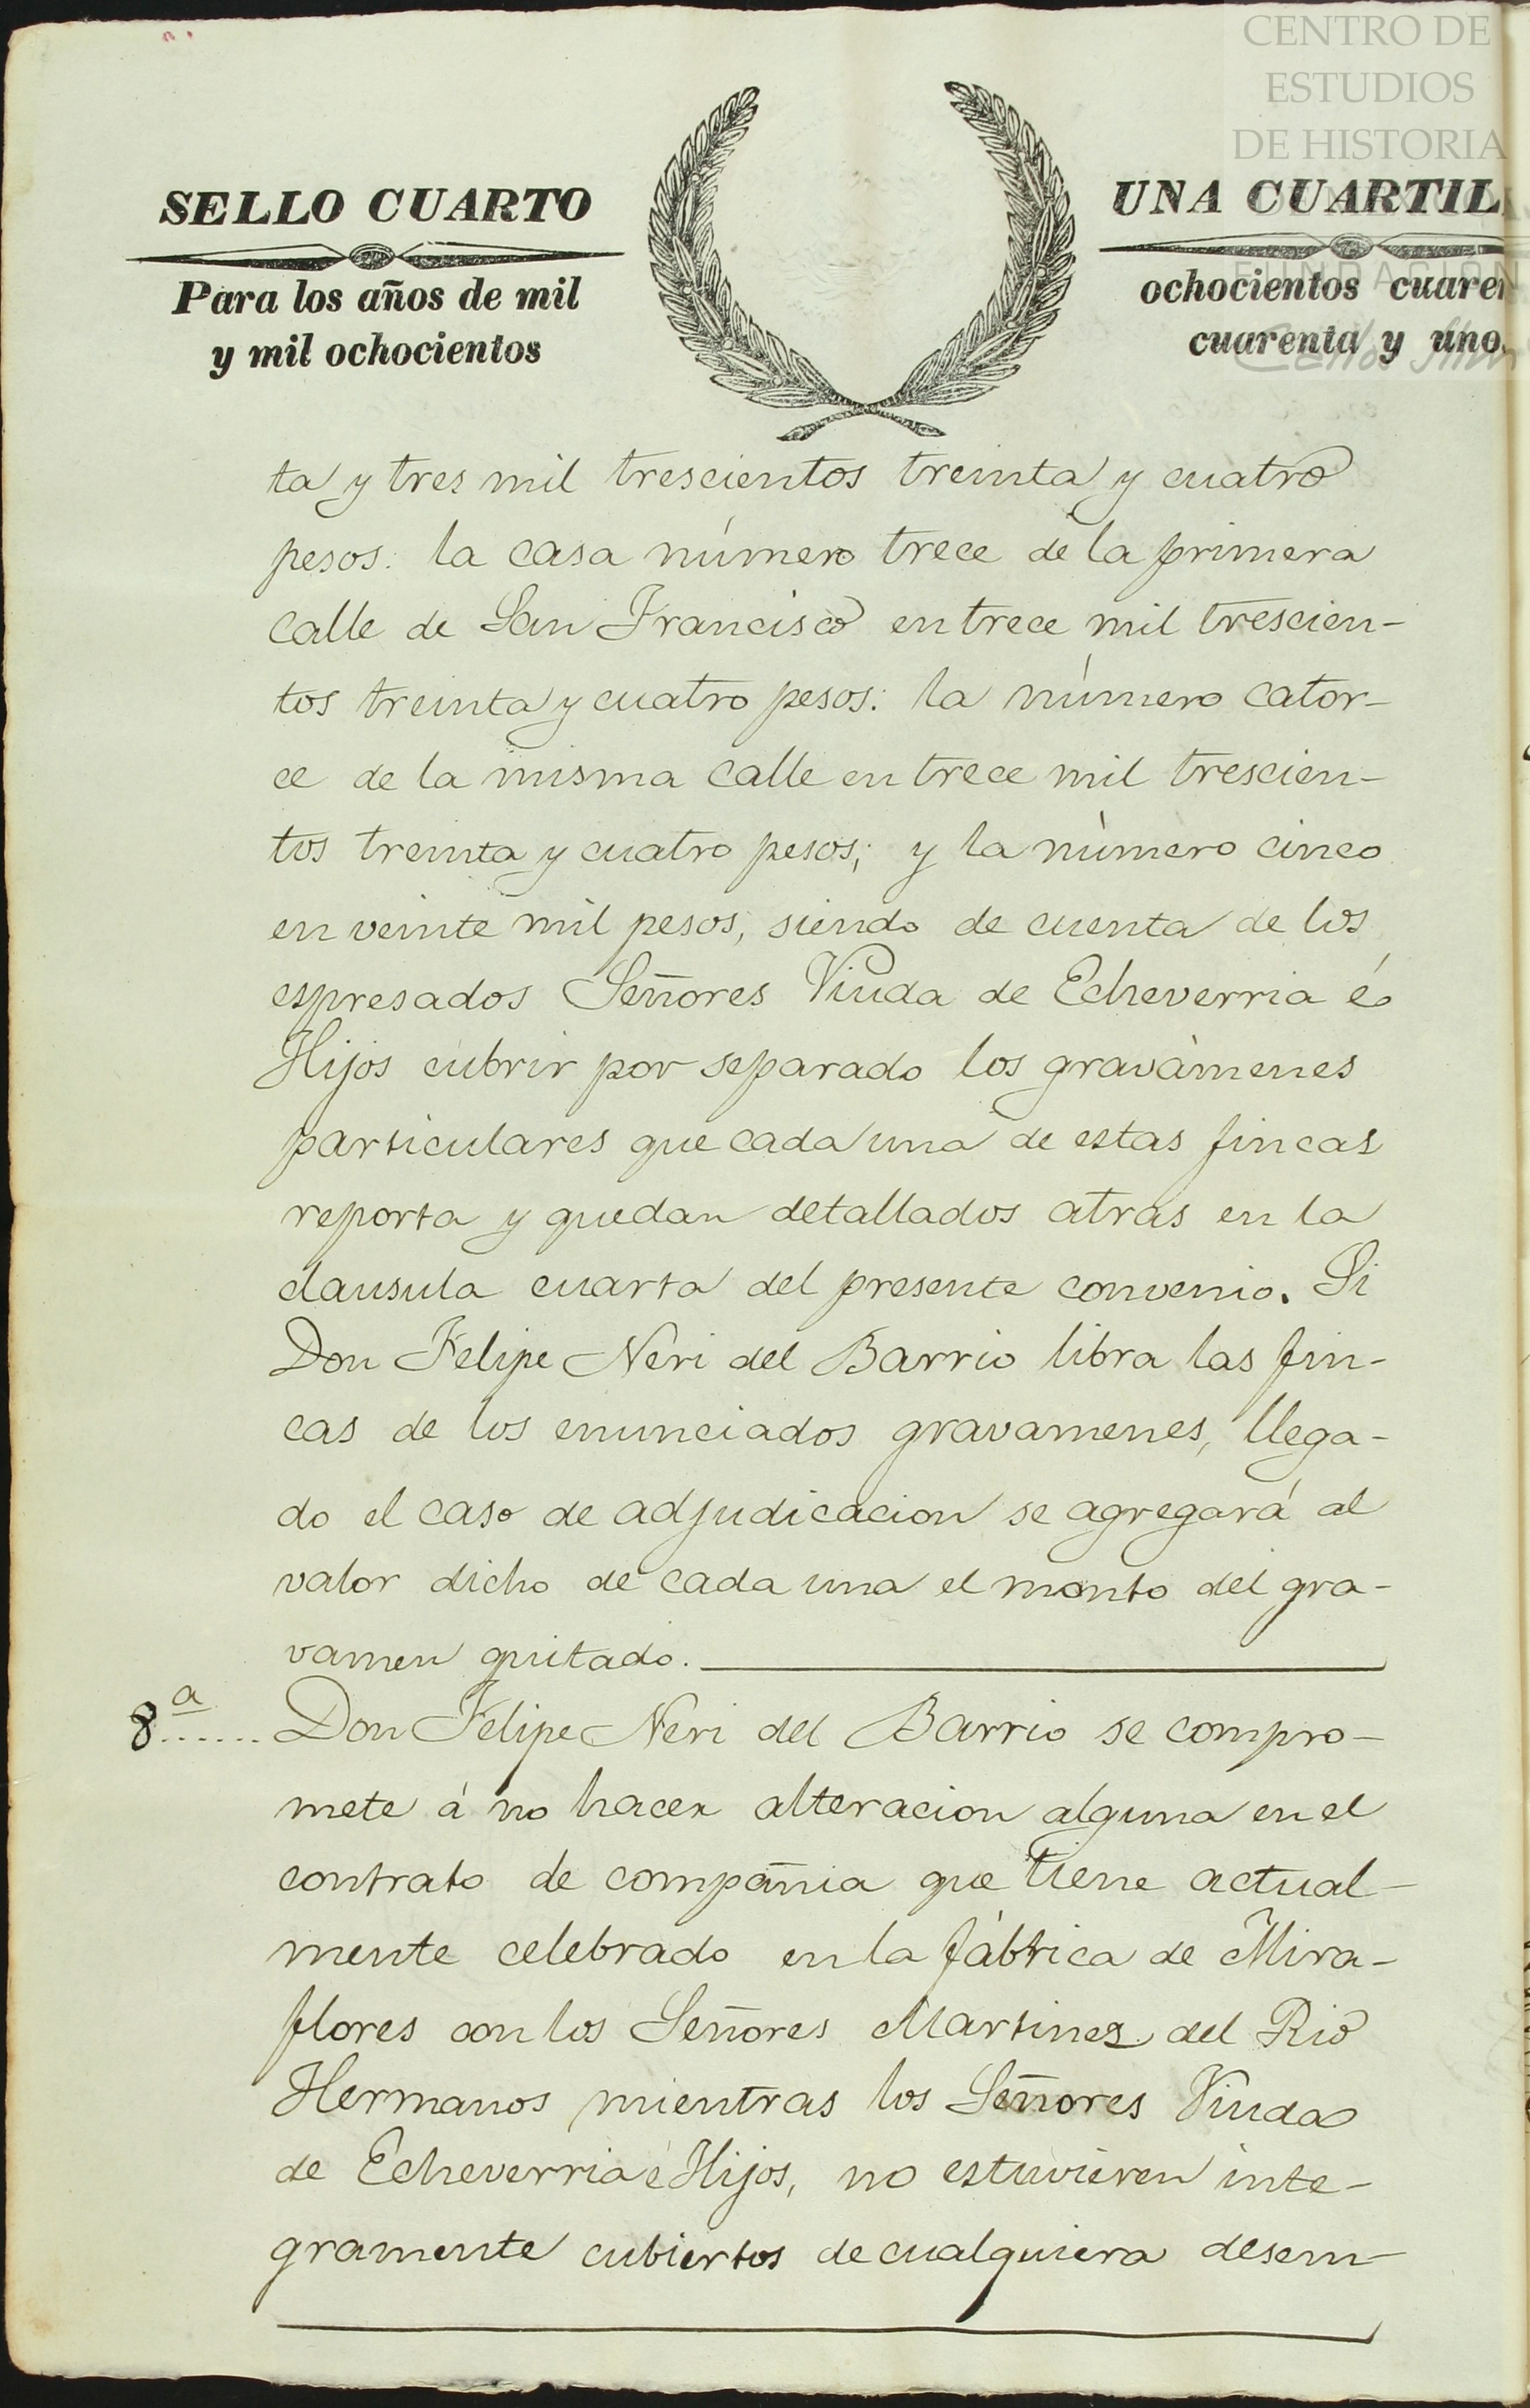 CENTRO DE
ESTUDIOS
DE HISTORIA
FUNDACIÓN
SELLO CUARTO
UNA CUARTIL
Para los años de mil
ochocientos cuaren
y mil ochocientos
cuarenta y uno.
ta y tres mil trescientos treinta y cuatro
pesos: la casa número trece de la primera
calle de San Francisco en trece mil trescien-
tos treinta y cuatro pesos: la número cator-
ce de la misma calle en trece mil trescien-
tos treinta y cuatro pesos; y la número cinco
en veinte mil pesos, siendo de cuenta de los
espresados Señores Viuda de Echeverria é
Hijos cubrir por separado los gravámenes
particulares que cada una de estas fincas
reporta y quedan detallados atras en la
clausula cuarta del presente convenio. Si
Don Felipe Neri del Barrio libra las fin-
cas de los enunciados gravamenes, llega-
do el caso de adjudicacion se agregará al
valor dicho de cada una el monto del gra-
vamen quitado.
8ª...... Don Felipe Neri del Barrio se compro-
mete á no hacer alteracion alguna en el
contrato de compañia que tiene actual-
mente celebrado en la fábrica de Mira-
flores con los Señores Martinez del Rio
Hermanos mientras los Señores Viuda
de Echeverria é Hijos, no estuvieren inte-
gramente cubiertos de cualquiera desem-